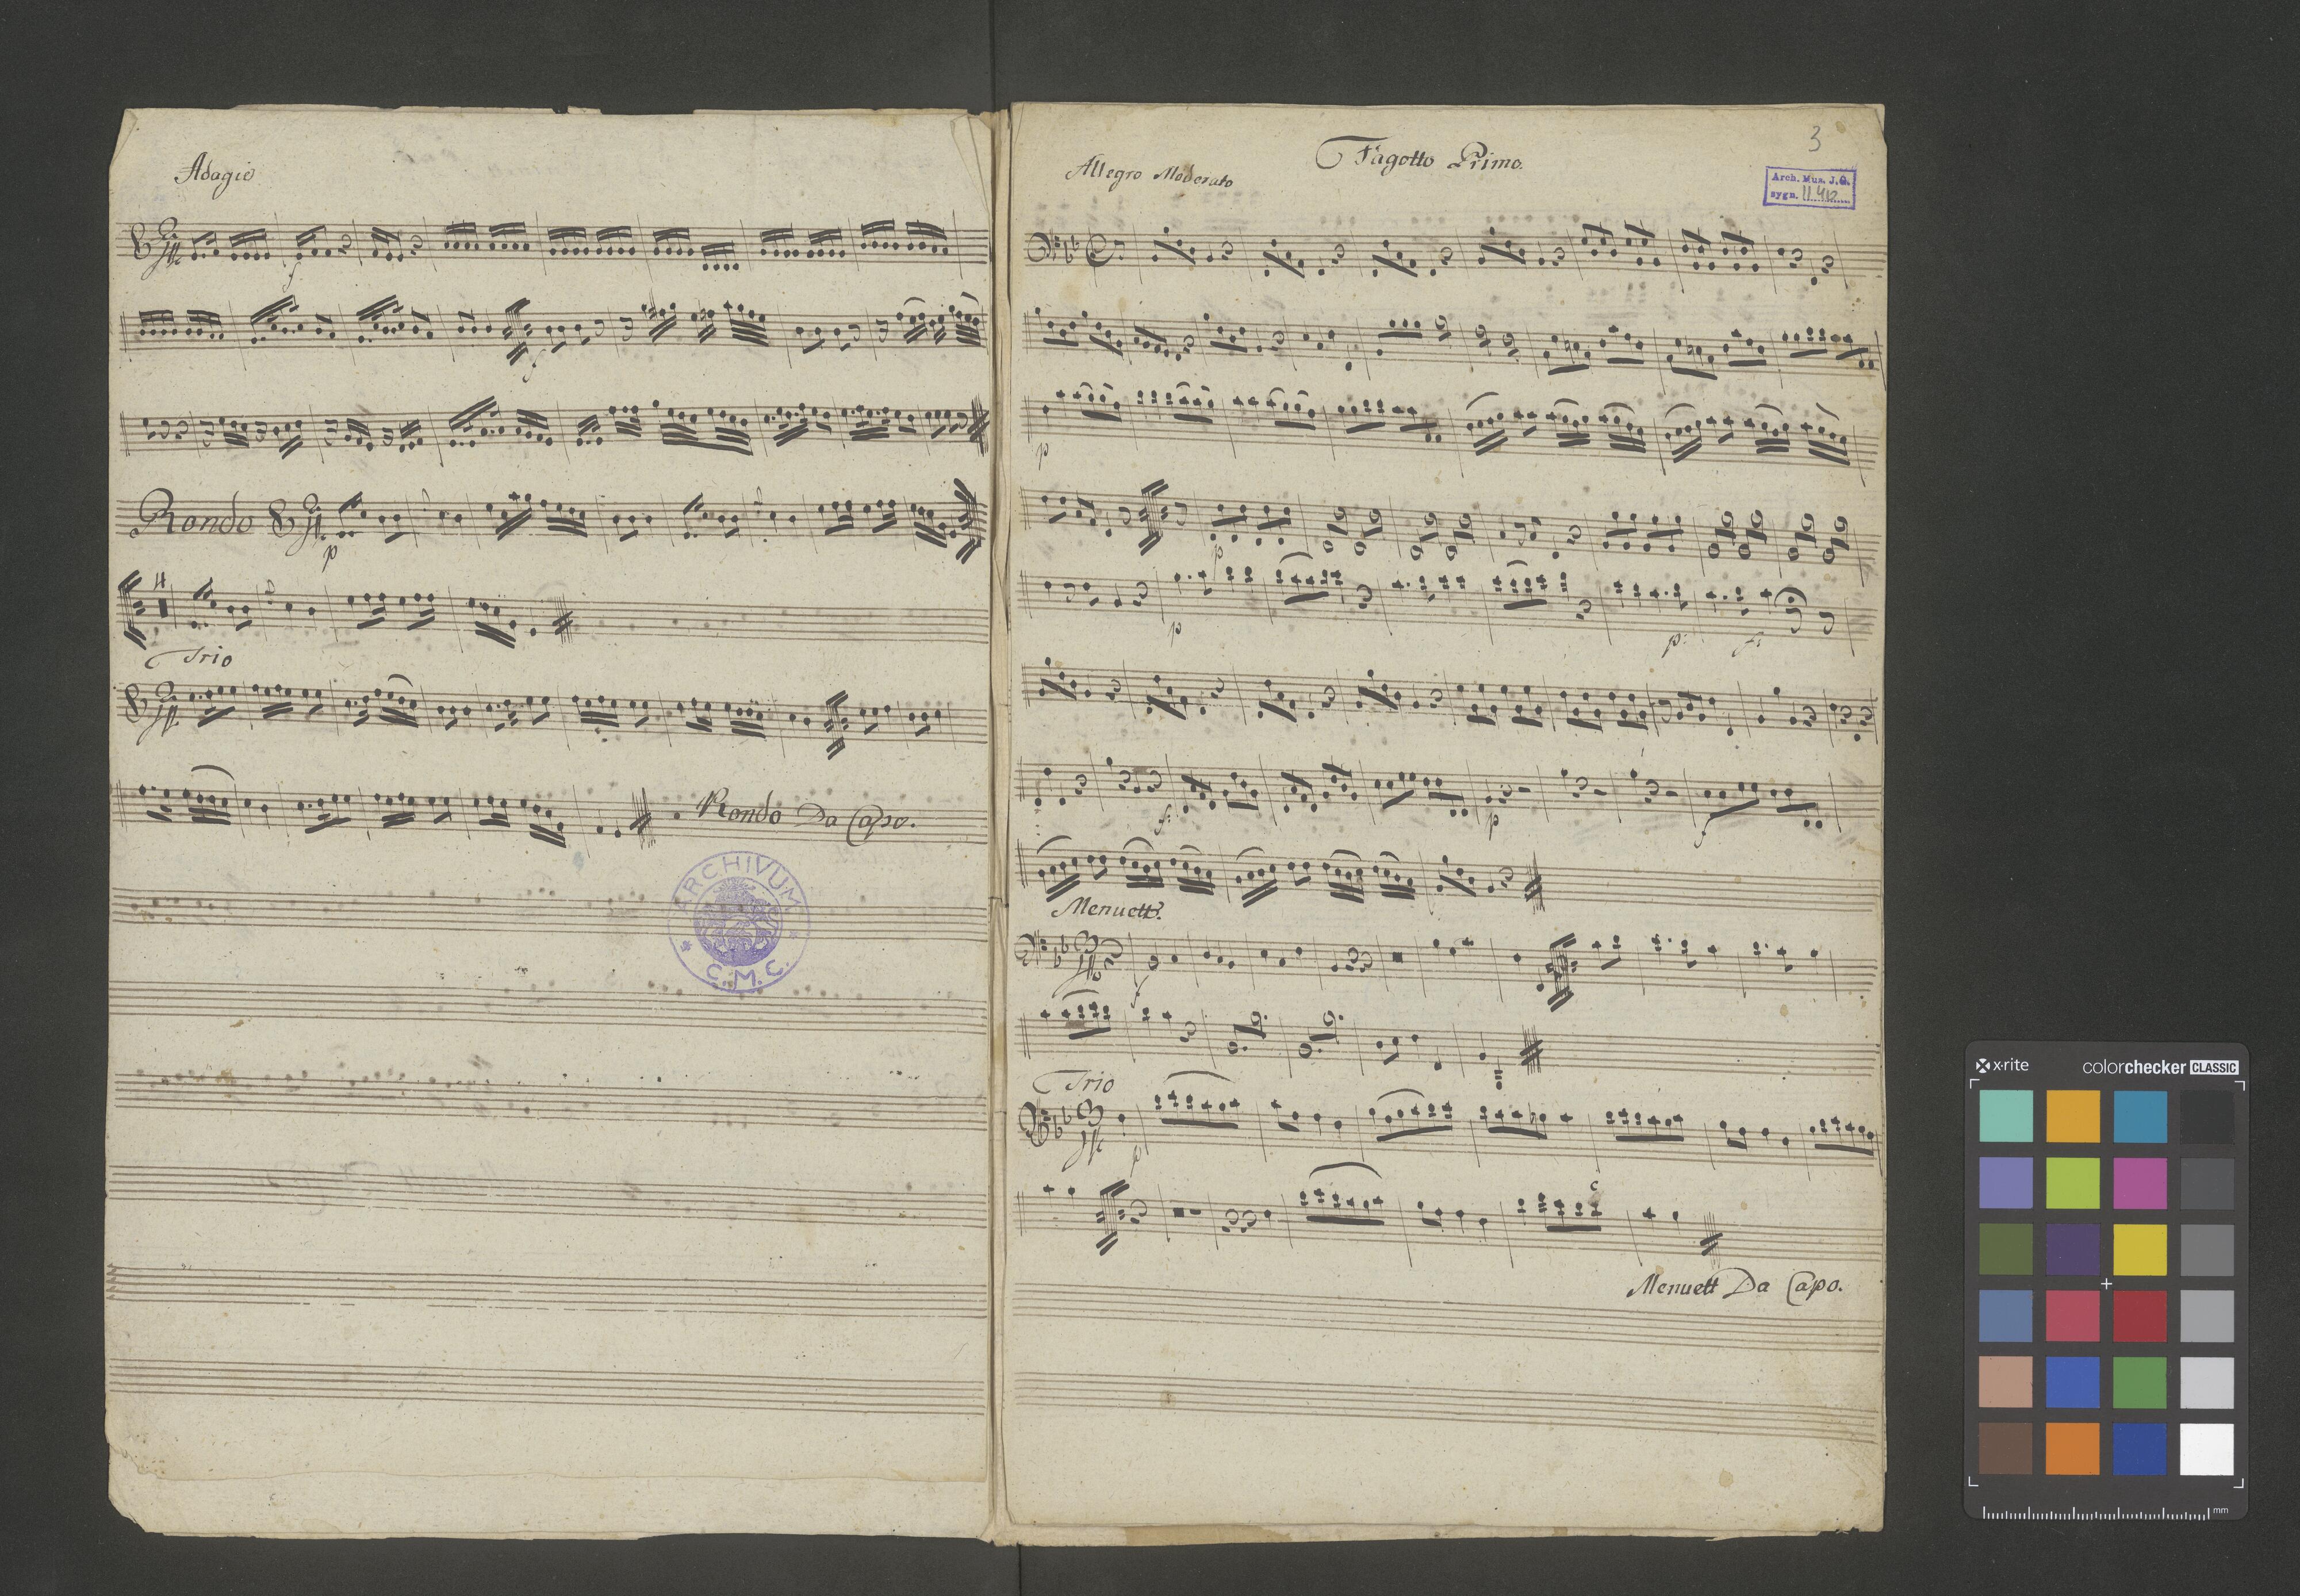 Adagio
f
f
Rondo
p
4
Trio
Rondo Da Capo.
ARCHIVUM
C.M.C.
3
Fagotto Primo.
Allegro Moderato
Arch. Mus. J.G.
sygn. II.412
p
p
p
p:
f:
f:
p
f
Menuett.
f
Trio
p
c
Menuett Da Capo.
x-rite
colorchecker CLASSIC
mm